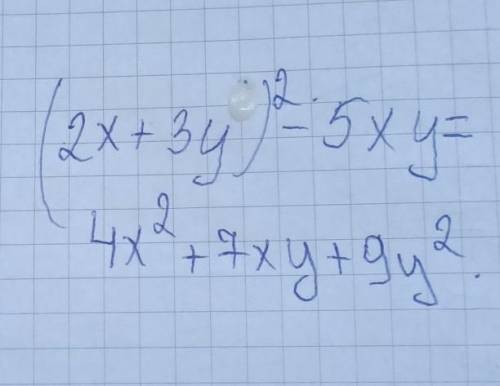 (2x + 3y)² - 5xy =
4x² + 7xy + 9y².